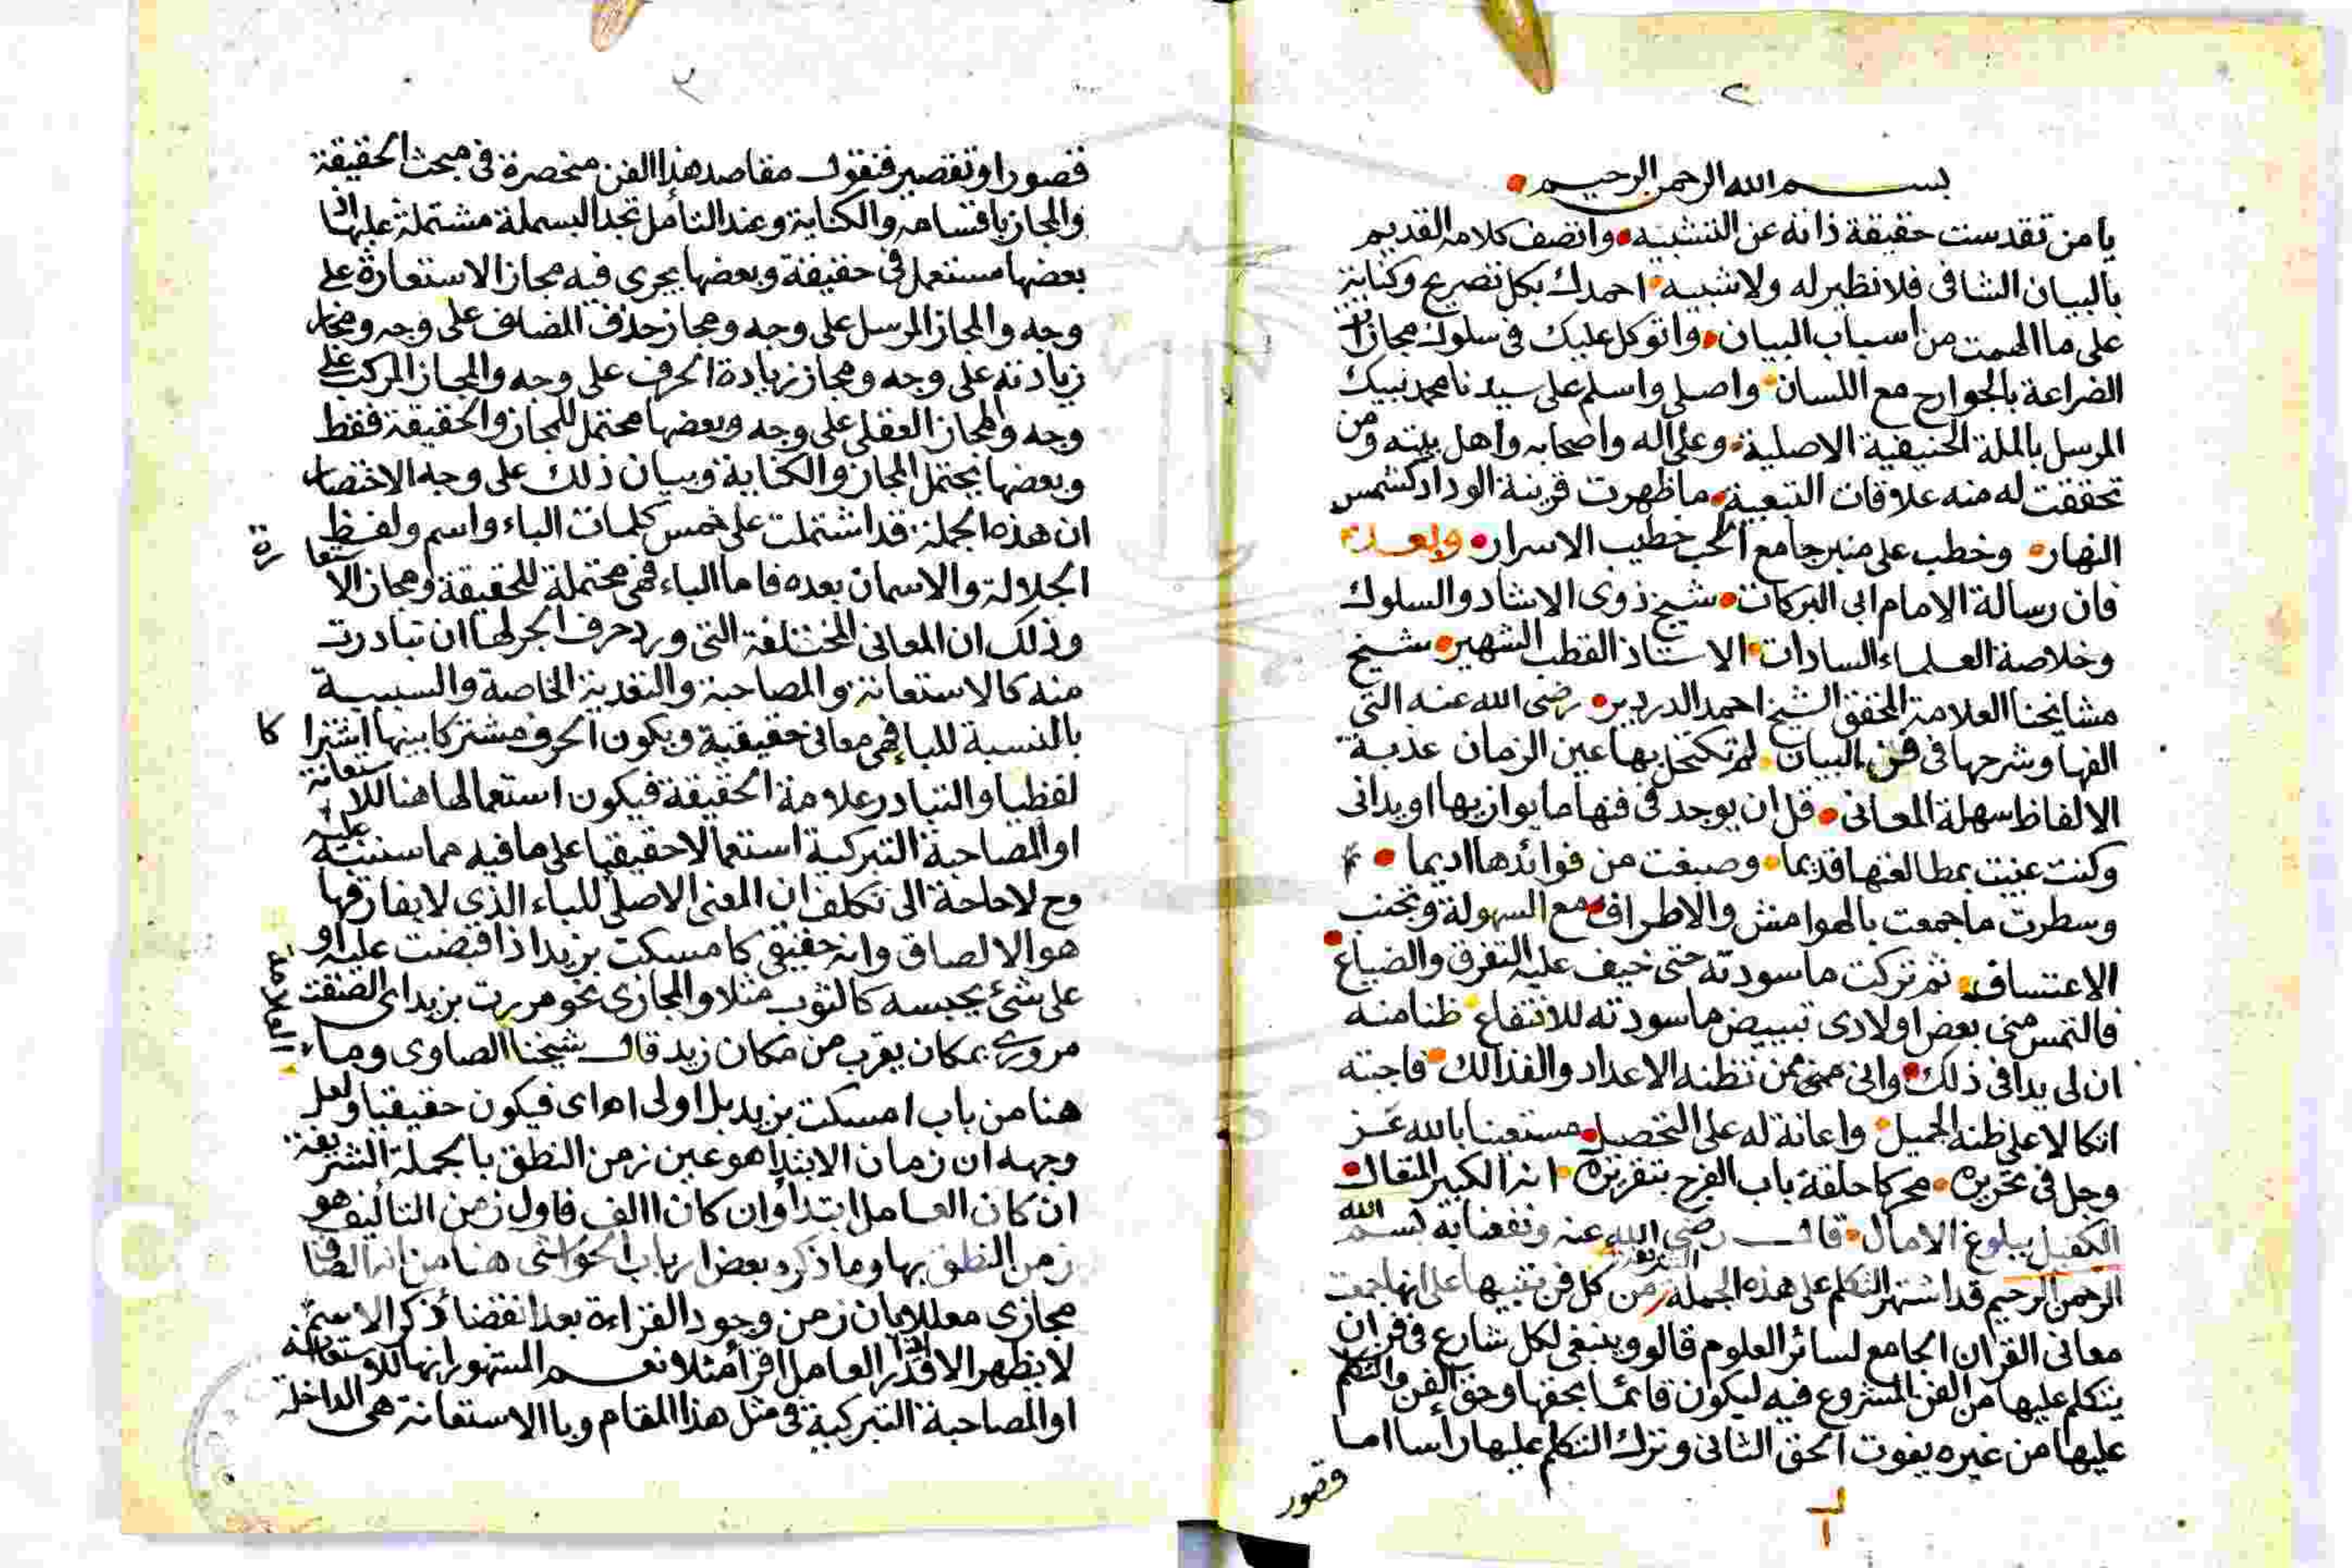 ٢
بسم الله الرحمن الرحيم
يا من تقدست حقيقة ذاته عن التشبيه واتصف كلامه القديم
بالبيان الشافى فلا نظير له ولا شبيه احمدك بكل تصريح وكناية
على ما الهمت من اسباب البيان واتوكل عليك فى سلوك مجازات
الضراعة بالجوارح مع اللسان واصلى واسلم على سيدنا محمد نبيك
المرسل بالملة الحنيفية الاصلية وعلى اله واصحابه واهل بيته ومن
تحققت له منه علاقات التبعية ما ظهرت قرينة الوداد كشمس
النهار وخطب على منبر جامع الحب خطيب الاسرار وبعد
فان رسالة الامام ابى البركات شيخ ذوى الارشاد والسلوك
وخلاصة العلماء السادات الاستاذ القطب الشهير شيخ
مشايخنا العلامة المحقق الشيخ احمد الدردير رضى الله عنه التى
الفها وشرحها فى فن البيان لم تكتحل بها عين الزمان عذبة
الالفاظ سهلة المعانى قل ان يوجد فى فنها ما يوازيها او يدانى
وكنت عنيت بمطالعتها قديما وصبغت من فوائدها اديما
وسطرت ما جمعت بالهوامش والاطراف مع السهولة وتجنب
الاعتساف ثم تركت ما سودته حتى خيف عليه التفرق والضياع
فالتمس منى بعض اولادى تبييض ما سودته للانتفاع ظنا منه
ان لى يدا فى ذلك وانى ممن تظنه الاعداد والفذالك فاجبته
اتكالا على ظنه الجميل واعانة له على التحصيل مستعينا بالله عز
وجل فى تحريره محركا حلقة باب الفرج بتقريره انه الكبير المتعال
الكفيل ببلوغ الامال قال رضى الله عنه ونفعنا به بسم الله
الرحمن الرحيم قد اشتهر التكلم على هذه الجملة الشريفة من كل فن تنبيها على انها جمعت
معانى القران الجامع لسائر العلوم قالوا وينبغى لكل شارع فى فن ان
يتكلم عليها من الفن المشروع فيه ليكون قائما بحقها وحق الفن والتكلم
عليها من غيره يفوت الحق الثانى وترك التكلم عليها رأسا اما
قصور
٣
قصورا وتقصير فنقول مقاصد هذا الفن منحصرة فى مبحث الحقيقة
والمجاز باقسامه والكناية وعند التأمل تجد البسملة مشتملة عليها اذ
بعضها مستعمل فى حقيقة وبعضها يجرى فيه مجاز الاستعارة على
وجه والمجاز المرسل على وجه ومجاز حذف المضاف على وجه ومجاز
زيادته على وجه ومجاز زيادة الحرف على وجه والمجاز المركب على
وجه والمجاز العقلى على وجه وبعضها محتمل للمجاز والحقيقة فقط
وبعضها يحتمل المجاز والكناية وبيان ذلك على وجه الاختصار
ان هذه الجملة قد اشتملت على خمس كلمات الباء واسم ولفظ
الجلالة والاسمان بعده فاما الباء فهى محتملة للحقيقة ومجاز الاستعارة
وذلك ان المعانى المختلفة التى ورد حرف الجر لها ان تبادرت
منه كالاستعانة والمصاحبة والتعدية الخاصة والسببية
بالنسبة للباء فهى معانى حقيقية ويكون الحرف مشتركا بينها اشتراكا
لفظيا والتبادر علامة الحقيقة فيكون استعمالها هنا للاستعانة
او المصاحبة التبركية استعمالا حقيقيا على ما فيه مما سننبه عليه
وح لا حاجة الى تكلف ان المعنى الاصلى للباء الذى لا يفارقها
هو الالصاق وانه حقيقى كامسكت بزيد اذا قبضت عليه او
على شئ يحبسه كالثوب مثلا والمجازى نحو مررت بزيد اى الصقت
مرورى بمكان يقرب من مكان زيد قال شيخنا العلامة الصاوى وما
هنا من باب امسكت بزيد بل اولى اه اى فيكون حقيقيا ولعل
وجهه ان زمان الابتدا هو عين زمن النطق بالجملة الشريفة
ان كان العامل ابتدأ وان كان االف فاول زمن التأليف هو
زمن النطق بها وما ذكره بعض ارباب الحواشى هنا من انه الصاق
مجازى معللا بان زمن وجود القراءة بعد انقضا ذكر الاسم
لا يظهر الا اذا قدر العامل اقرأ مثلا نعم المشهور انها للاستعانة
او المصاحبة التبركية فى مثل هذا المقام وبا الاستعانة هى الداخلة